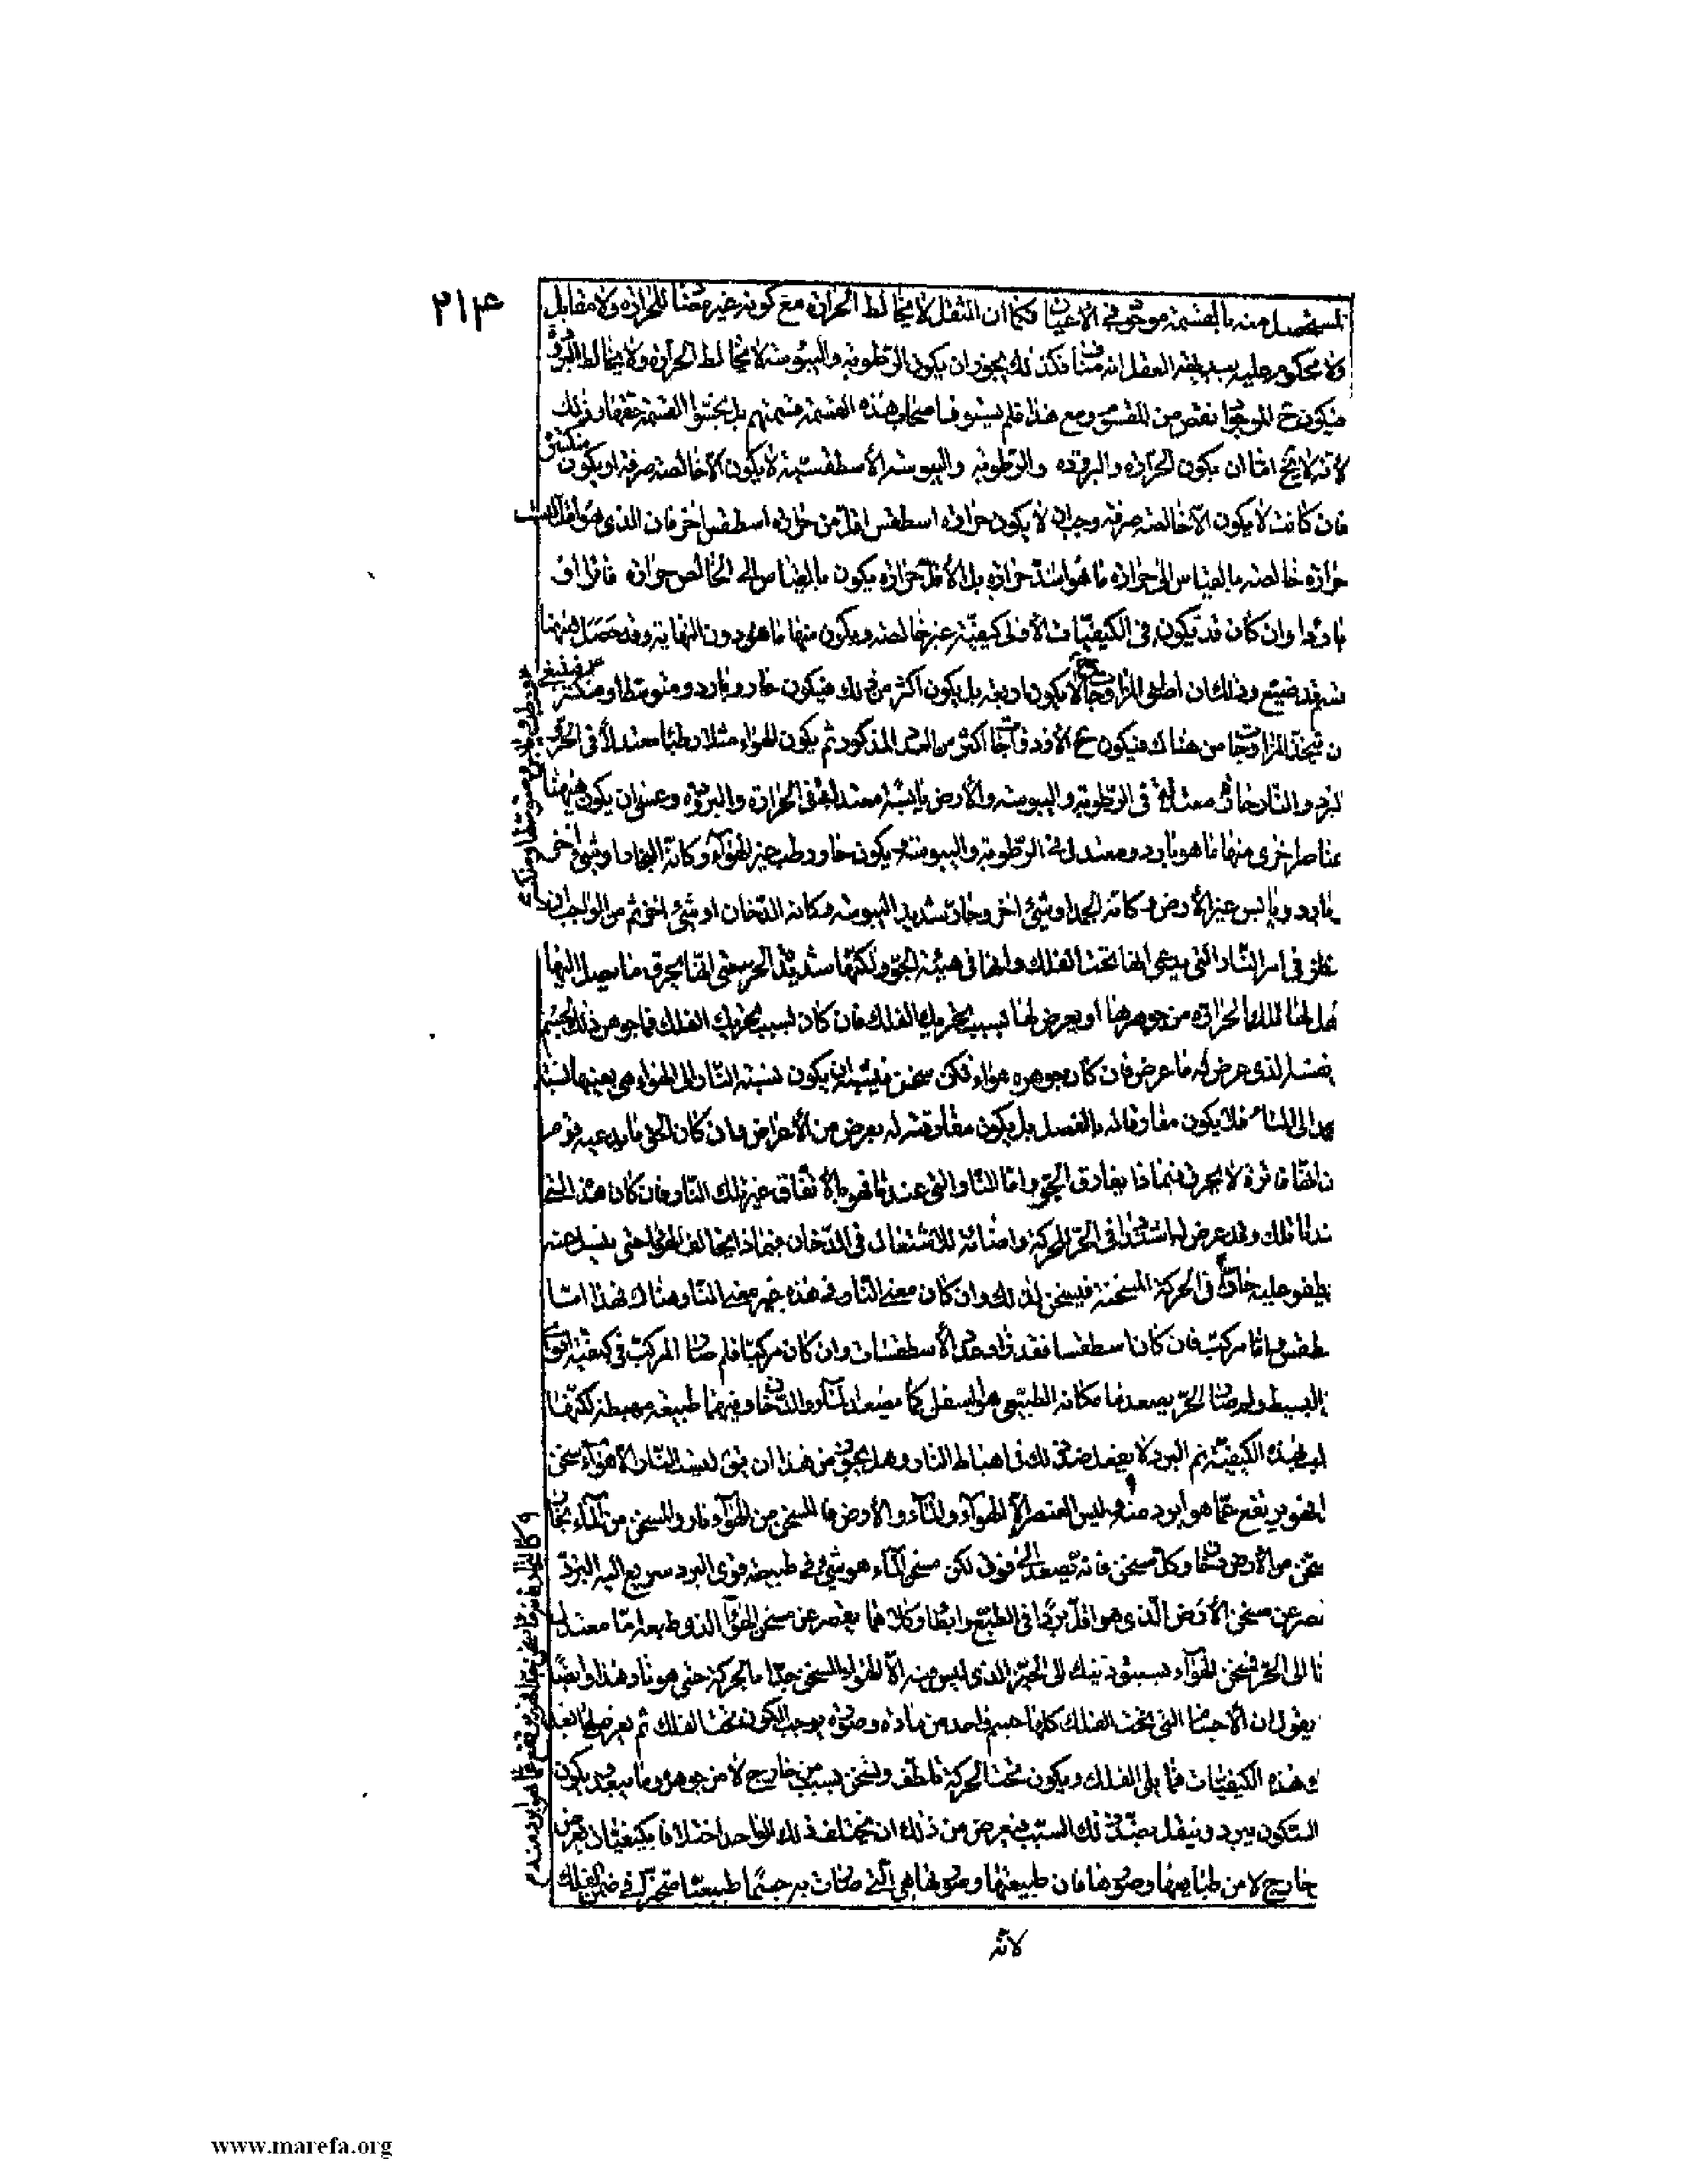 ٢١٤
المستحصل منه بالقسمة موجودا في الأعيان فكما ان الثقل لا يخالط الحرارة مع كونه غير مضاد للحرارة ولا مقابل
ولا محكوم عليه ببديهة العقل انه مناف فكذلك يجوز ان يكون الرطوبة واليبوسة لا يخالط الحرارة ولا يخالط البرودة
فيكون ح الموجود انقص من المقسوم ومع هذا فلم يستوف اصحاب هذه القسمة قسمتهم بل بخسوا القسمة حقها وذلك
لانه لا يخ اما ان يكون الحرارة والبرودة والرطوبة واليبوسة الأسطقسية لا يكون الا خالصة صرفة او يكون منكسرة
فان كانت لا يكون الا خالصة صرفة وجب ان لا يكون حرارة اسطقس اقل من حرارة اسطقس اخر فان الذي هو اقل ليست
حرارة خالصة بالقياس الى حرارة ما هو اشد حرارة بل الأقل حرارة يكون بالقياس الى الخالص حرارة فاترا او
باردا وان كان قد يكون في الكيفيات الأولى كيفية غير خالصة ويكون منها ما هو دون النهاية وقد حصل فيها
قد ضيع وذلك ان اصول المزاوجات ح لا يكون اربعة بل يكون اكثر من ذلك فيكون حار وبارد ومتوسط او منكسر
المزاوجات من هناك فيكون ح الأزدواجات اكثر من العدد المذكور ثم يكون الهواء مثلا رطبا معتدلا في الحر
البرد والنار حارة معتدلة في الرطوبة واليبوسة والأرض يابسة معتدلة في الحرارة والبرودة وعسى ان يكون فيها
عناصر اخرى منها ما هو بارد ومعتدل في الرطوبة واليبوسة ويكون حار رطب غير الهواء وكانه البخار او شئ اخر
بارد ويابس غير الأرض وكانه الجمد او شئ اخر وحار شديد اليبوسة وكانه الدخان او شئ اخر ثم من الواجب ان
في امر النار التي يدعى انها تحت الفلك وانها في هيئة الجو ولكنها شديدة الحر حتى انها يحرق ما يصل اليها
هل لها تلك الحرارة من جوهرها او يعرض لها بسبب تحريك الفلك فان كان بسبب تحريك الفلك فما جوهر ذلك الجسم
نفسه الذي عرض له ما عرض فان كان جوهره هواء لكن سخن فيشبه ان يكون نسبة النار الى الهواء هي بعينها نسبة
الى الماء فلا يكون مفارقا له بالفصل بل يكون مفارقته له بعرض من الأعراض وان كان الحق ما يدعيه قوم
انها فاترة لا يحرق فبماذا يفارق الجو واما النار التي عندنا فهو بالأتفاق غير تلك النار فان كان هذا التي
عندنا تلك وقد عرض لها اشتداد في الحر للحركة واضائة للاشتعال في الدخان فبماذا يخالف الهواء حتى ينسل عنه
يطفو عليه خارقا في الحركة المسخنة فيسخن لذلك وان كان معنى النار في هذه غير معنى النار هناك فهذا اما
اسطقس واما مركب فان كان اسطقسا فقد زاد عدد الأسطقسات وان كان مركبا فلم صار المركب في كيفية اقوى
البسيط ولم صار الحر يصعد ما مكانه الطبيعي هو السفل كما يصعد النار والدخان وفيهما طبيعة مهبطة لكنهما
لهذه الكيفية ثم البرد لا يفعل ضد ذلك في اهباط النار وهل يجوز من هذا ان يق ليست النار الا هواء سخن
الهو يرتفع عما هو ابرد منه وليس العنصر الا الهواء والماء والأرض فالمسخن من الهواء نار والمسخن من الماء بخار
من الأرض دخان وكل مسخن فانه يصعد الى فوق لكن مسخن الماء هو شئ في طبيعة قوى البرد سريع اليه البرد
عن مسخن الأرض الذي هو اقل بردا في الطبع وابطأ وكلاهما يقصر عن مسخن الهواء الذي طبعه اما معتدل
الى الحر فسخن الهواء يسبق ذينك الى الحيز الذي ليس فيه الا الهواء المسخن جدا بالحركة حتى هو نار وهذا وايضا
يقول ان الأجسام التي تحت الفلك كلها جسم واحد من مادة وصورة يوجب الكون تحت الفلك ثم يعرض لها بعد
هذه الكيفيات فما يلى الفلك ويكون تحت الحركة تلطف وتسخن بسبب من خارج لا من جوهره وما يبعد يكون
السكون يبرد ويثقل بضد ذلك السبب فيعرض من ذلك ان يختلف ذلك الواحد اختلافا بكيفيات تعرض من
خارج لا من طبايعها وصورها فان طبيعتها وصورتها هي التي صارت به جسما طبيعيا متحيزا في ضمن الفلك
لانه
فانه يرتفع عما هو ابرد منه
www.marefa.org